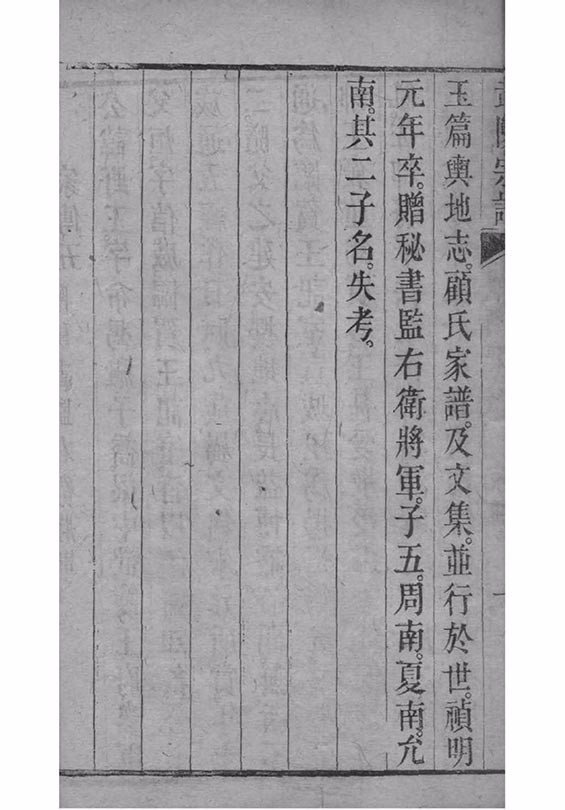 玉篇輿地志。顧氏家譜。及文集。並行於世。禎明
元年卒。贈秘書監右衛將軍。子五。周南。夏南。允
南。其二子名。失考。